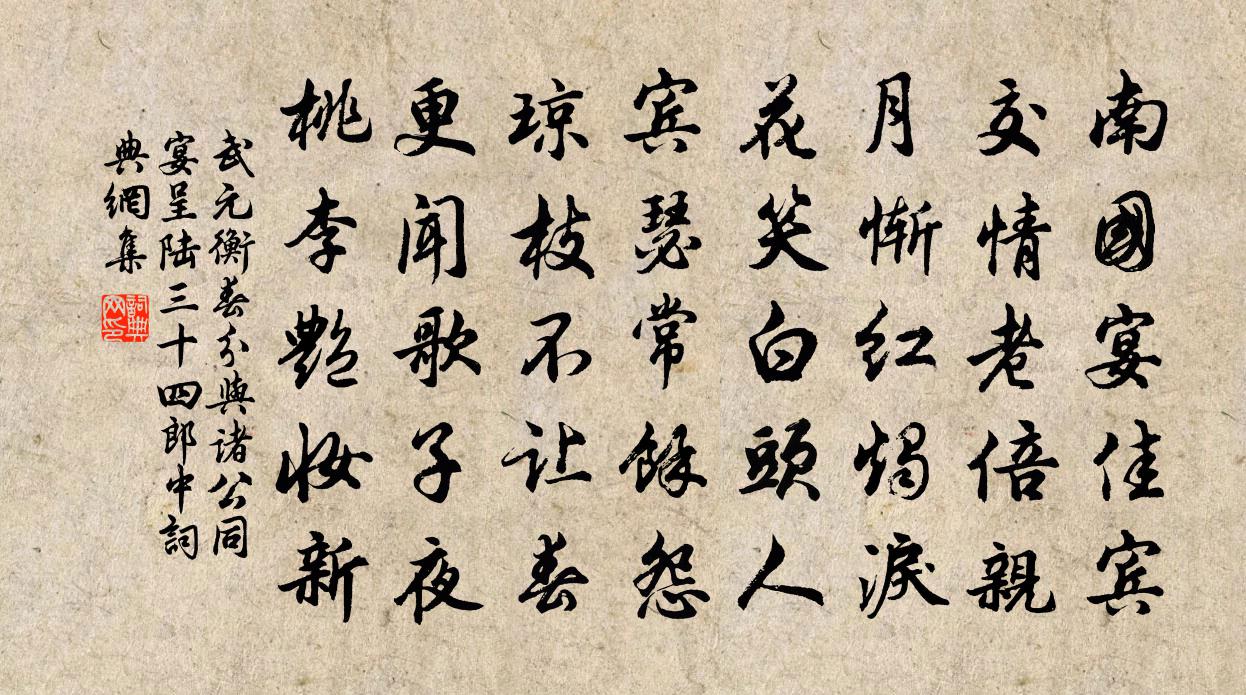 南國宴佳宾
交情老倍親
月惭红燭淚
花笑白頭人
宾瑟常餘怨
琼枝不让春
更闻歌子夜
桃李艶妆新
武元衡春分與诸公同
宴呈陆三十四郎中詞
典網集
詞典网印